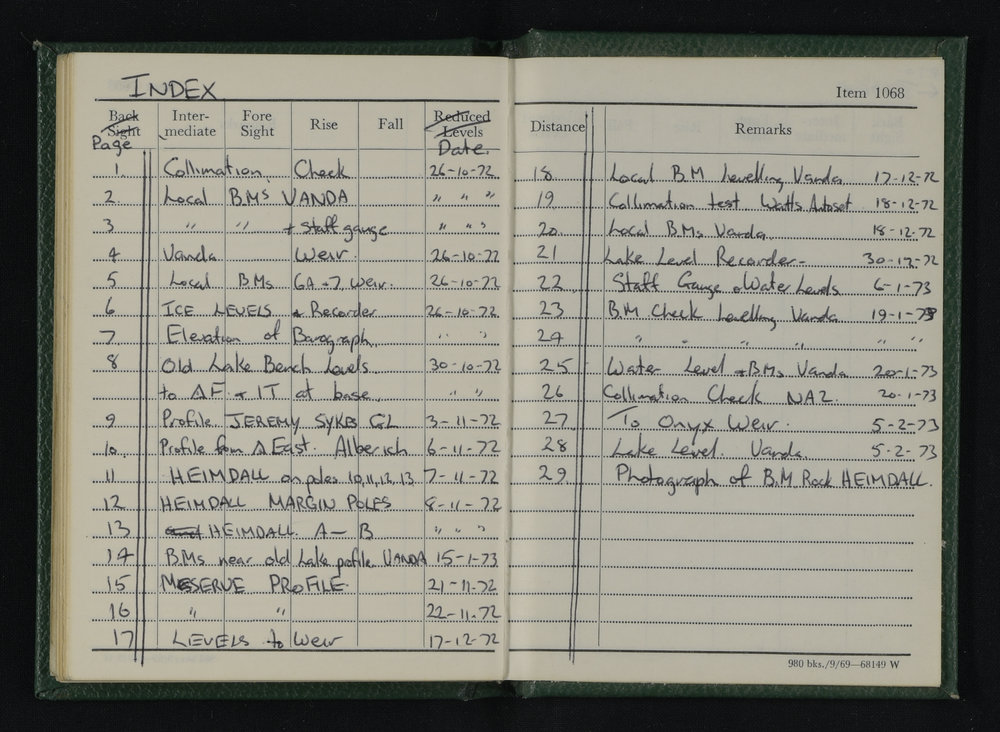 INDEX
Back Sight Inter-mediate Fore Sight Rise Fall Reduced Levels
Page Date.
1. Collimation Check 26-10-72
2. Local BMs VANDA " " "
3 " " + staff gauge " " "
4 Vanda Weir. 26-10-72
5 Local BMs GA-7 Weir. 26-10-72
6 ICE LEVELS + Recorder 26-10-72
7 Elevation of Barograph. " "
8 Old Lake Bench Levels 30-10-72
to Δ F + IT at base " "
9 Profile JEREMY SYKES GL 3-11-72
10. Profile from Δ East. Alberich 6-11-72
11 HEIMDALL on poles 10,11,12,13 7-11-72
12 HEIMDALL MARGIN POLES 8-11-72
13 HEIMDALL. A — B " " "
14 BMs near old Lake profile VANDA 15-1-73
15 MESERVE PROFILE. 21-11-72
16 " " 22-11-72
17 LEVELS to Weir 17-12-72
Item 1068
Distance Remarks
18 Local B.M Levelling Vanda 17-12-72
19 Collimation test Watts Autoset 18-12-72
20. Local BMs Vanda 18-12-72
21 Lake Level Recorder- 30-12-72
22 Staff Gauge + Water Levels 6-1-73
23 BM Check Levelling Vanda 19-1-73
24 " " " " " "
25 Water Level + BMs Vanda 20-1-73
26 Collimation Check NA2. 20-1-73
27 To Onyx Weir. 5-2-73
28 Lake Level. Vanda. 5-2-73
29 Photograph of B.M Rock HEIMDALL.
980 bks./9/69—68149 W